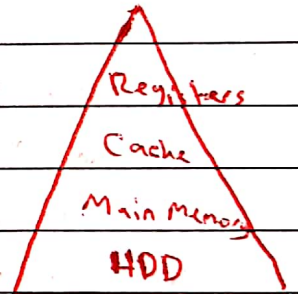 Registers
Cache
Main Memory
HDD